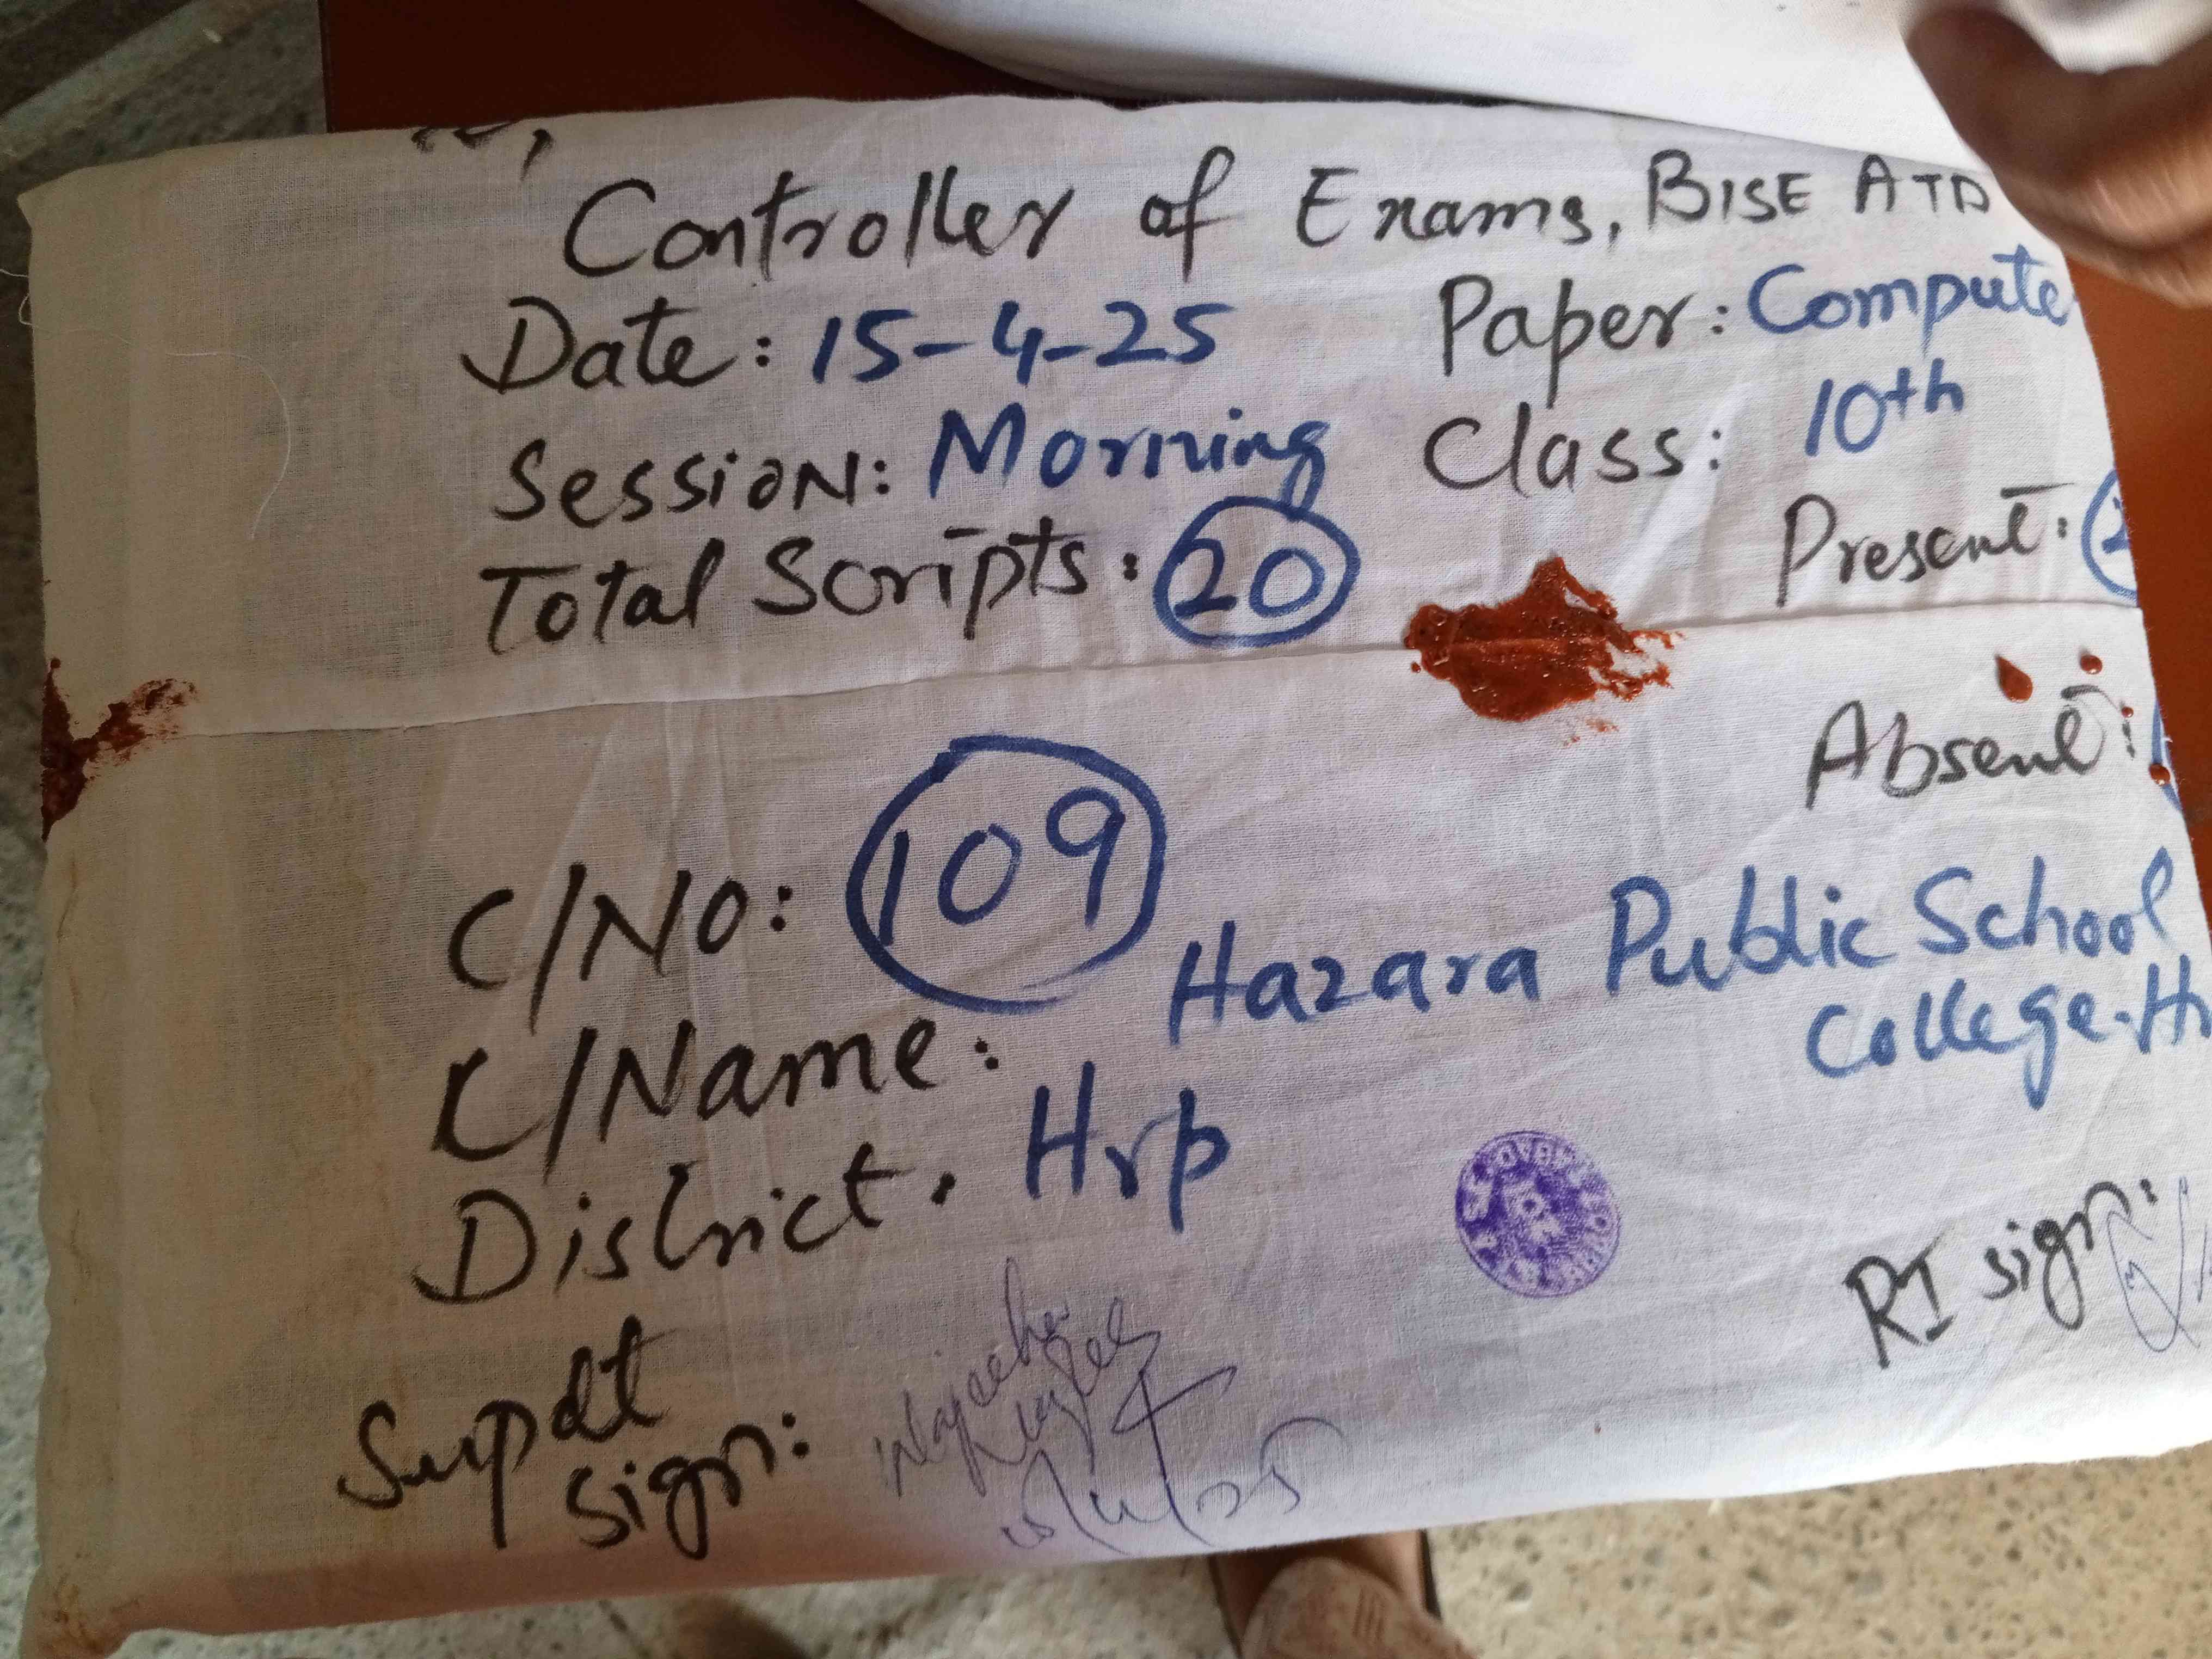 Controller of Exams, BISE ATD
Date: 15-4-25 Paper: Compute
Session: Morning Class: 10th
Total Scripts: 20 Present:
Absent:
C/No: 109
C/Name: Hazara Public School
College-H
District. Hrp
RI sign:
Supdt
sign: